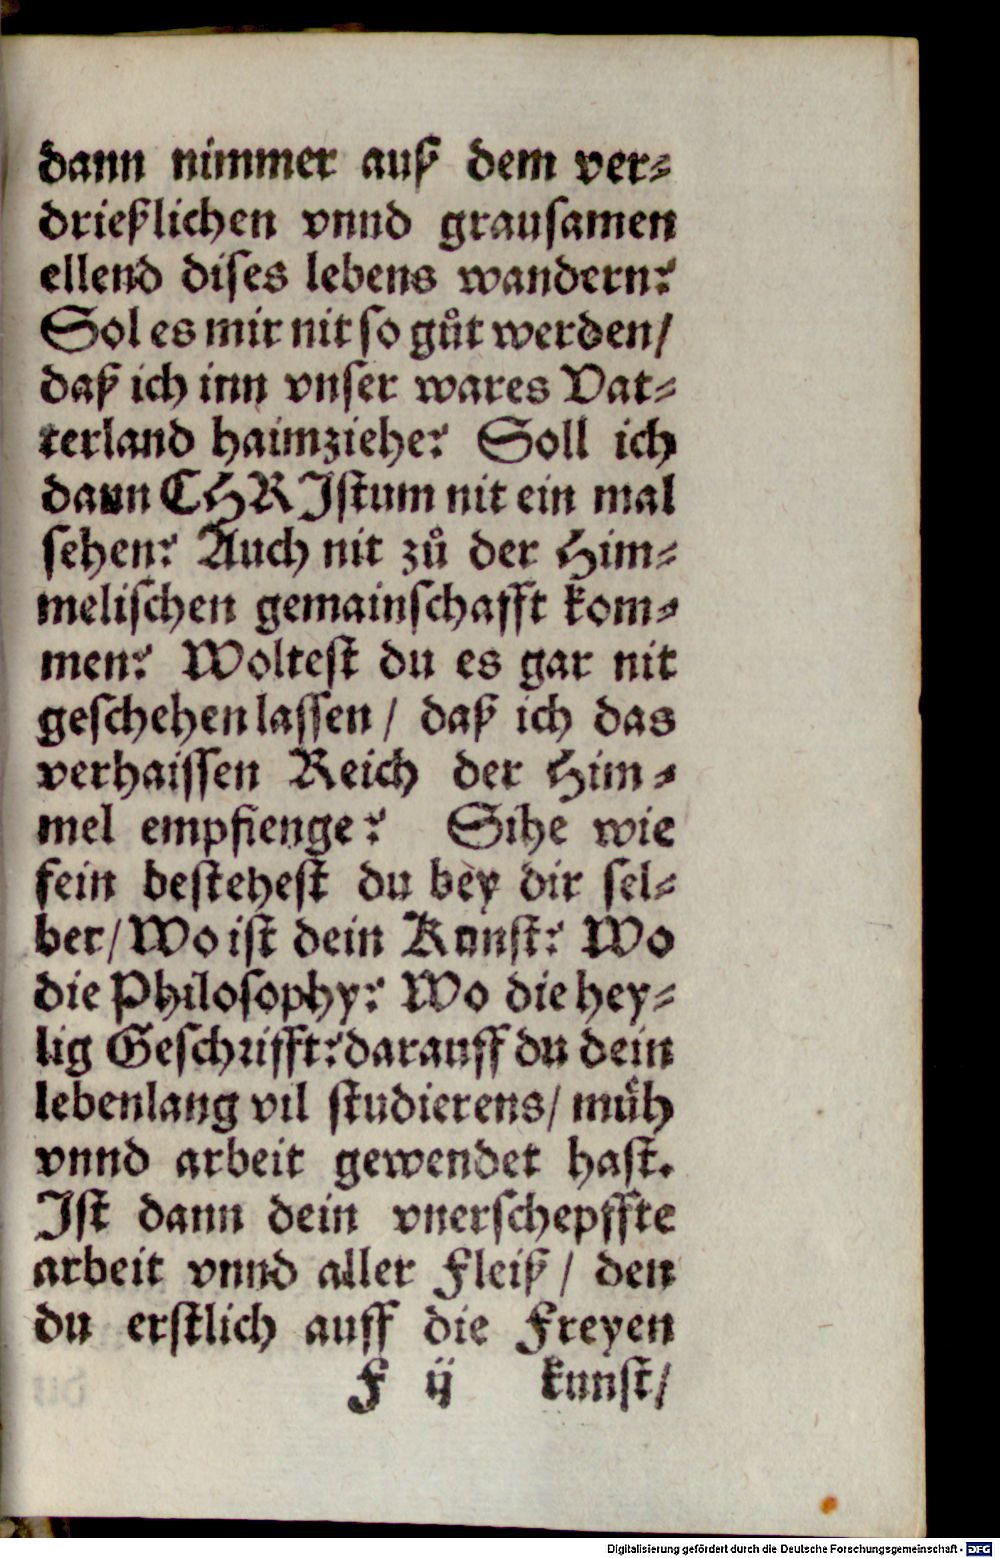 dann nimmer auß dem ver⸗
drießlichen vnnd grauſamen
ellend diſes lebens wandern?
Sol es mir nit ſo gůt werden/
daß ich inn vnſer wares Vat⸗
terland haimziehe? Soll ich
dann CHRIſtum nit ein mal
ſehen? Auch nit zů der Him⸗
meliſchen gemainſchafft kom⸗
men? Wolteſt du es gar nit
geſchehen laſſen / daß ich das
verhaiſſen Reich der Him⸗
mel empfienge? Sihe wie
fein beſteheſt du bey dir ſel⸗
ber/ Wo iſt dein Kunſt? Wo
die Philoſophy? Wo die hey⸗
lig Geſchrifft? darauff du dein
lebenlang vil ſtudierens/ muͤh
vnnd arbeit gewendet haſt.
Iſt dann dein vnerſchepffte
arbeit vnnd aller Fleiß / den
du erſtlich auff die Freyen
F ij kunſt/
Digitalisierung gefördert durch die Deutsche Forschungsgemeinschaft - DFG